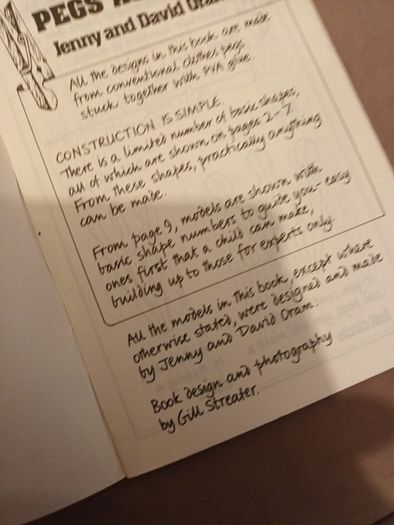 PEGS
Jenny and David Oram
All the designs in this book are made
from conventional clothes pegs
stuck together with PVA glue.
CONSTRUCTION IS SIMPLE
There is a limited number of basic shapes,
all of which are shown on pages 2-7.
From these shapes, practically anything
can be made.
From page 9, models are shown with
basic shape numbers to guide you - easy
ones first that a child can make,
building up to those for experts only.
All the models in this book, except where
otherwise stated, were designed and made
by Jenny and David Oram.
Book design and photography
by Gill Streater.